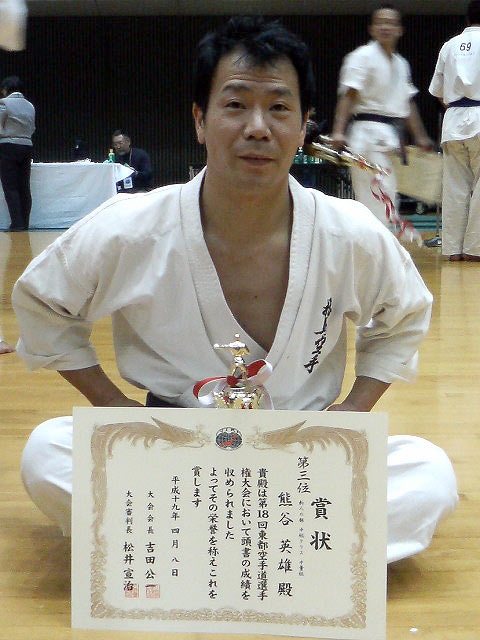 69
賞状
第三位
新人の部 中級クラス 中量級
熊谷 英雄 殿
貴殿は第18回東都空手道選手
権大会において頭書の成績を
収められました
よってその栄誉を称えこれを
賞します
平成十九年 四月 八日
大会会長 吉田 公一
大会審判長 松井 宣治